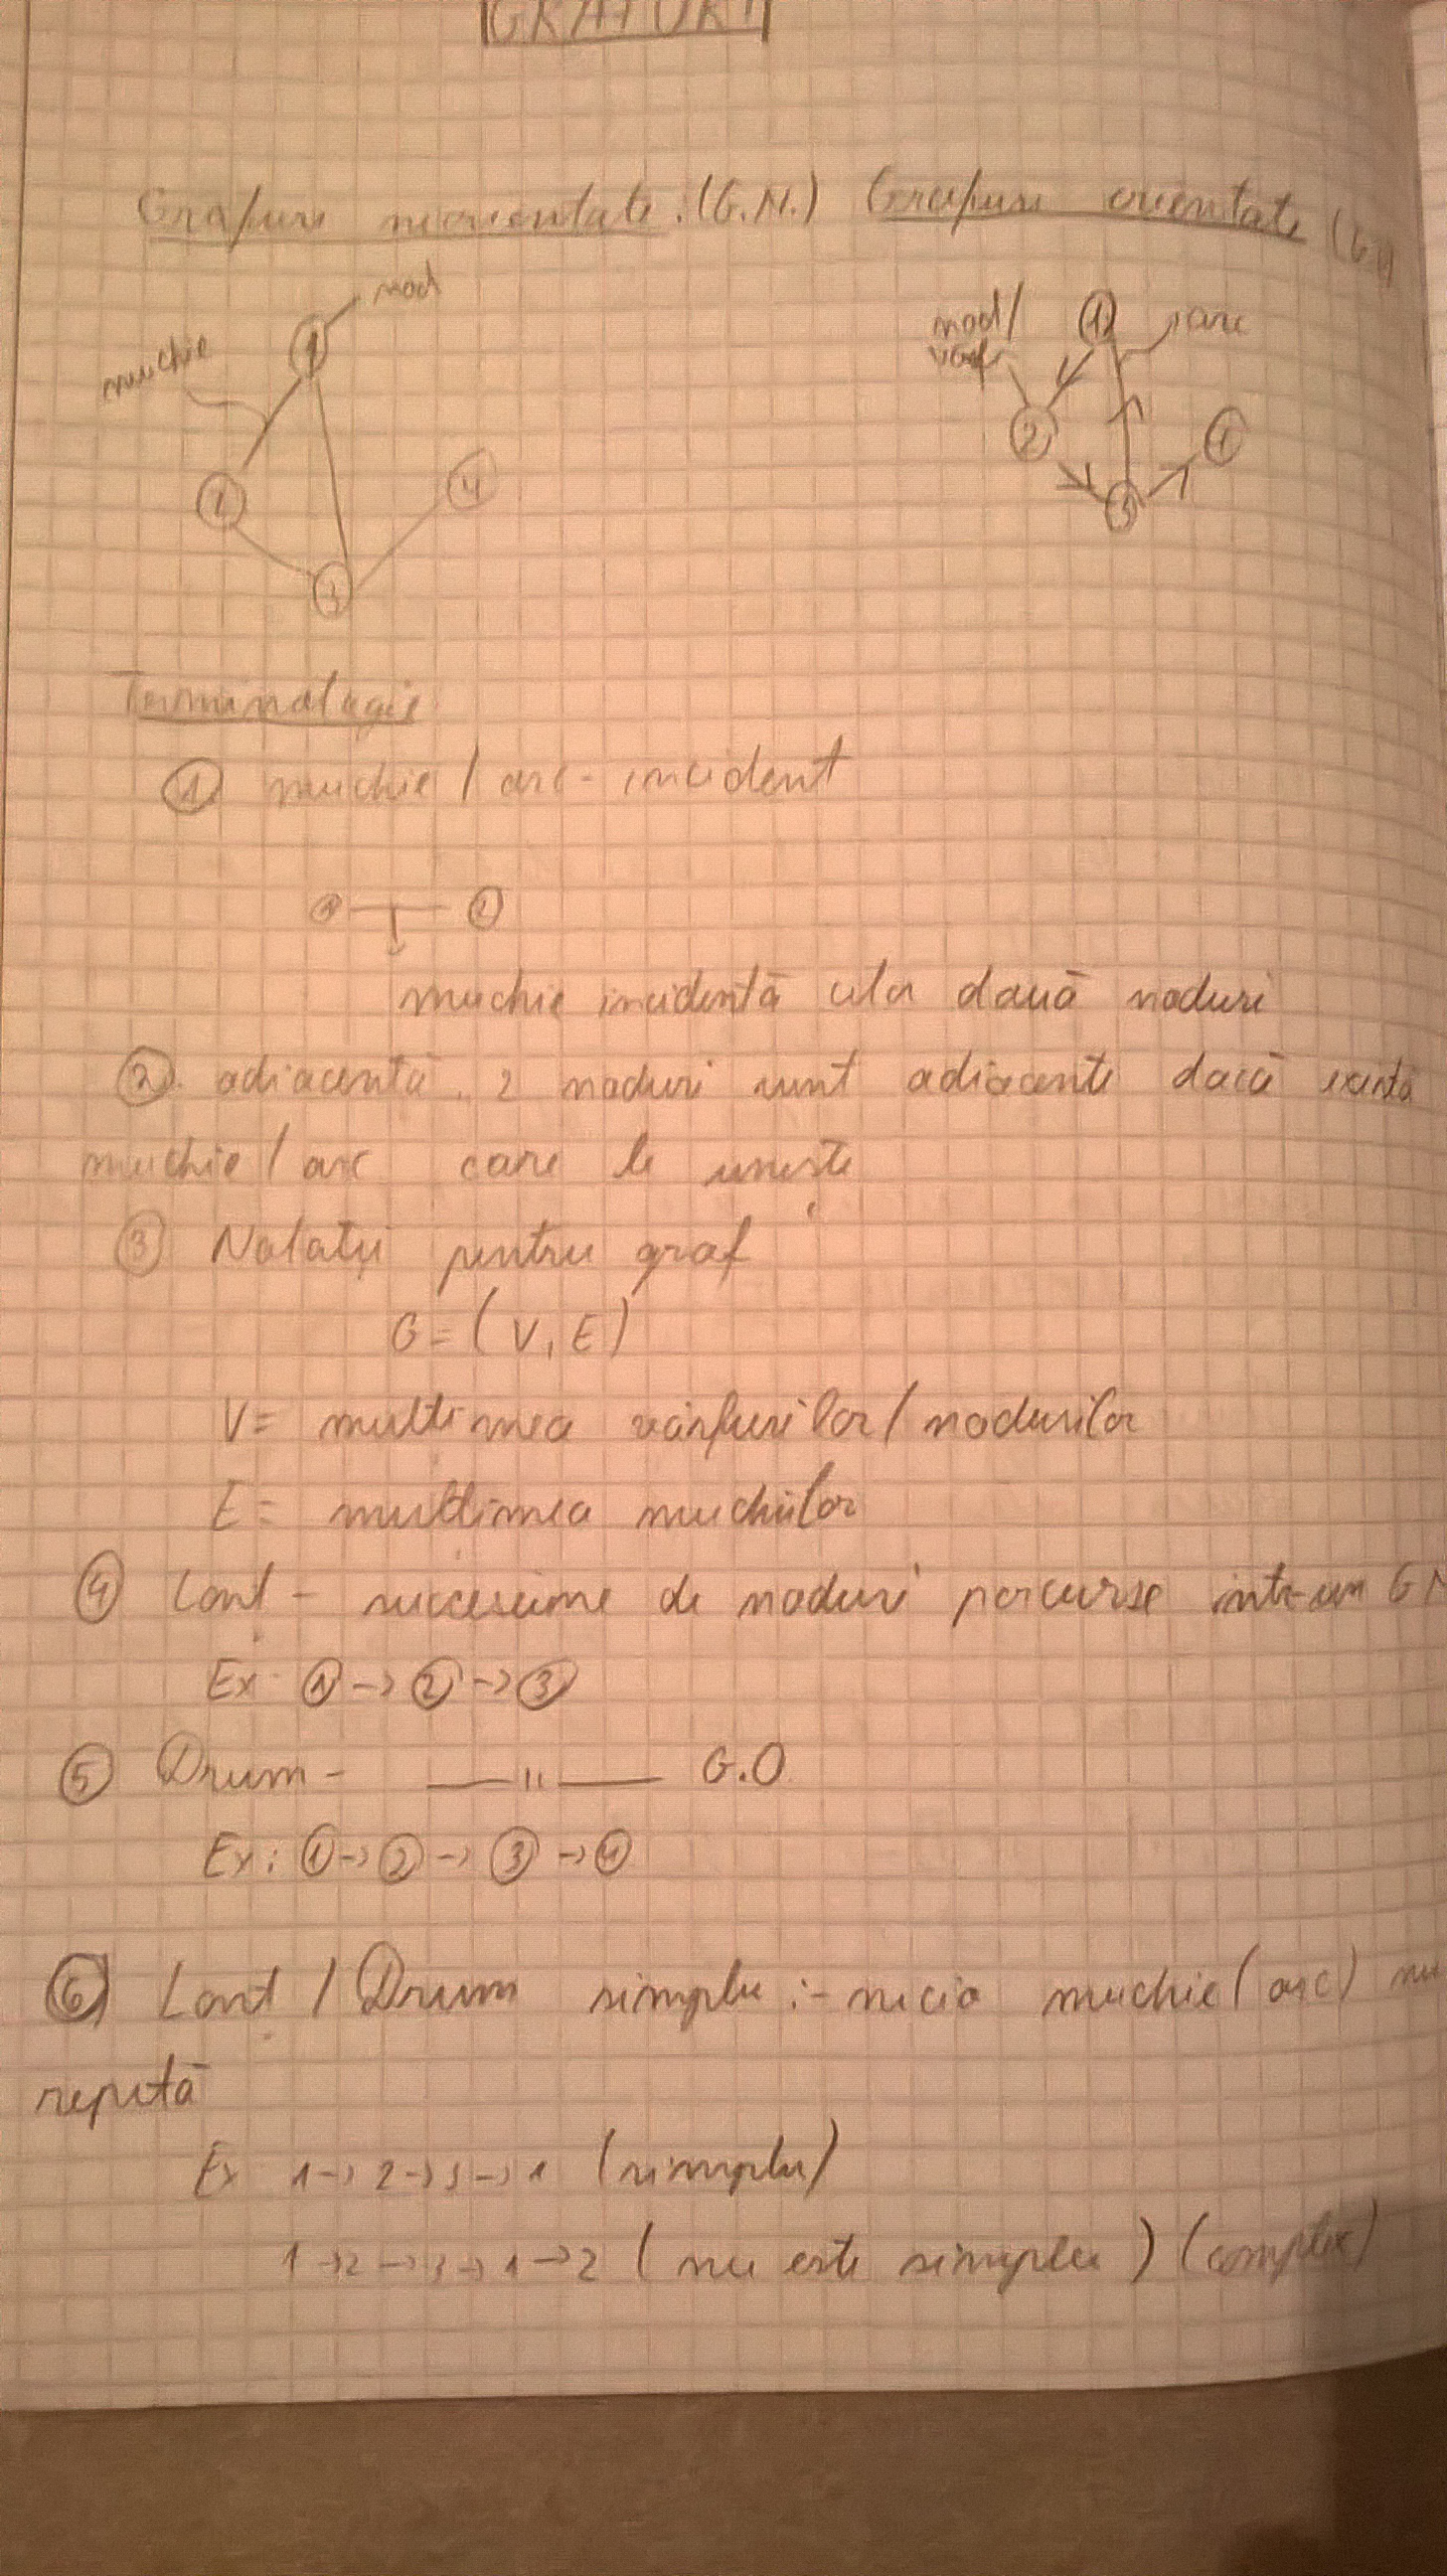 GRAFURI
Grafuri neorientate (G.N.) Grafuri orientate
nod
muchie
1
2
3
4
nod/
vârf
arc
1
2
3
4
Terminologie
① muchie / arc - incident
① ②
muchie incidentă celor două noduri
② adiacență. 2 noduri sunt adiacente dacă există
muchie / arc care le unește
③ Notații pentru graf
G = (V, E)
V = mulțimea vârfurilor / nodurilor
E = mulțimea muchiilor
④ Lanț - succesiune de noduri parcurse într-un GN
Ex ① -> ② -> ③
⑤ Drum - —— " —— G.O
Ex: ① -> ② -> ③ -> ④
⑥ Lanț / Drum simplu :- nicio muchie (arc) nu
repetă
Ex 1 -> 2 -> 3 -> 1 (simplu)
1 -> 2 -> 3 -> 1 -> 2 (nu este simplu) (complex)